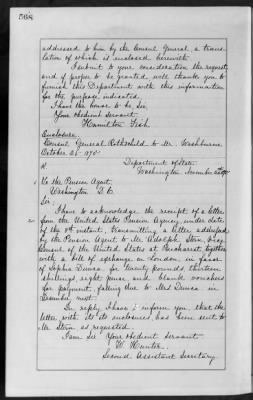 568
addressed to him by the Consul General, a trans-
lation of which is enclosed herewith.
I submit to your consideration the request,
and if proper to be granted, will thank you to
furnish this Department with this information
for the purpose indicated.
I have the honor to be, Sir,
Your obedient servant,
Hamilton Fish
Enclosure.
Consul General Rothschild to Mr. Washburne
October 26 1870
Department of State
Washington November
To the Pension Agent
Washington D.C.
Sir,
I have to acknowledge the receipt of a letter
from the United States Pension Agency under date
of the instant, transmitting a letter addressed
by the Pension Agent to Mr Adolph Stern,
Consul of the United States at Bucharest together
with a bill of exchange on London, in favor
of Sophia for twenty pounds thirteen
shillings eight pence and blank vouchers
for payment, falling due to Mrs
next.
In reply I have to inform you, that the
letter with its enclosures has been sent to
Mr Stern as requested.
I am Sir Your obedient servant
W. Hunter.
Second Assistant Secretary